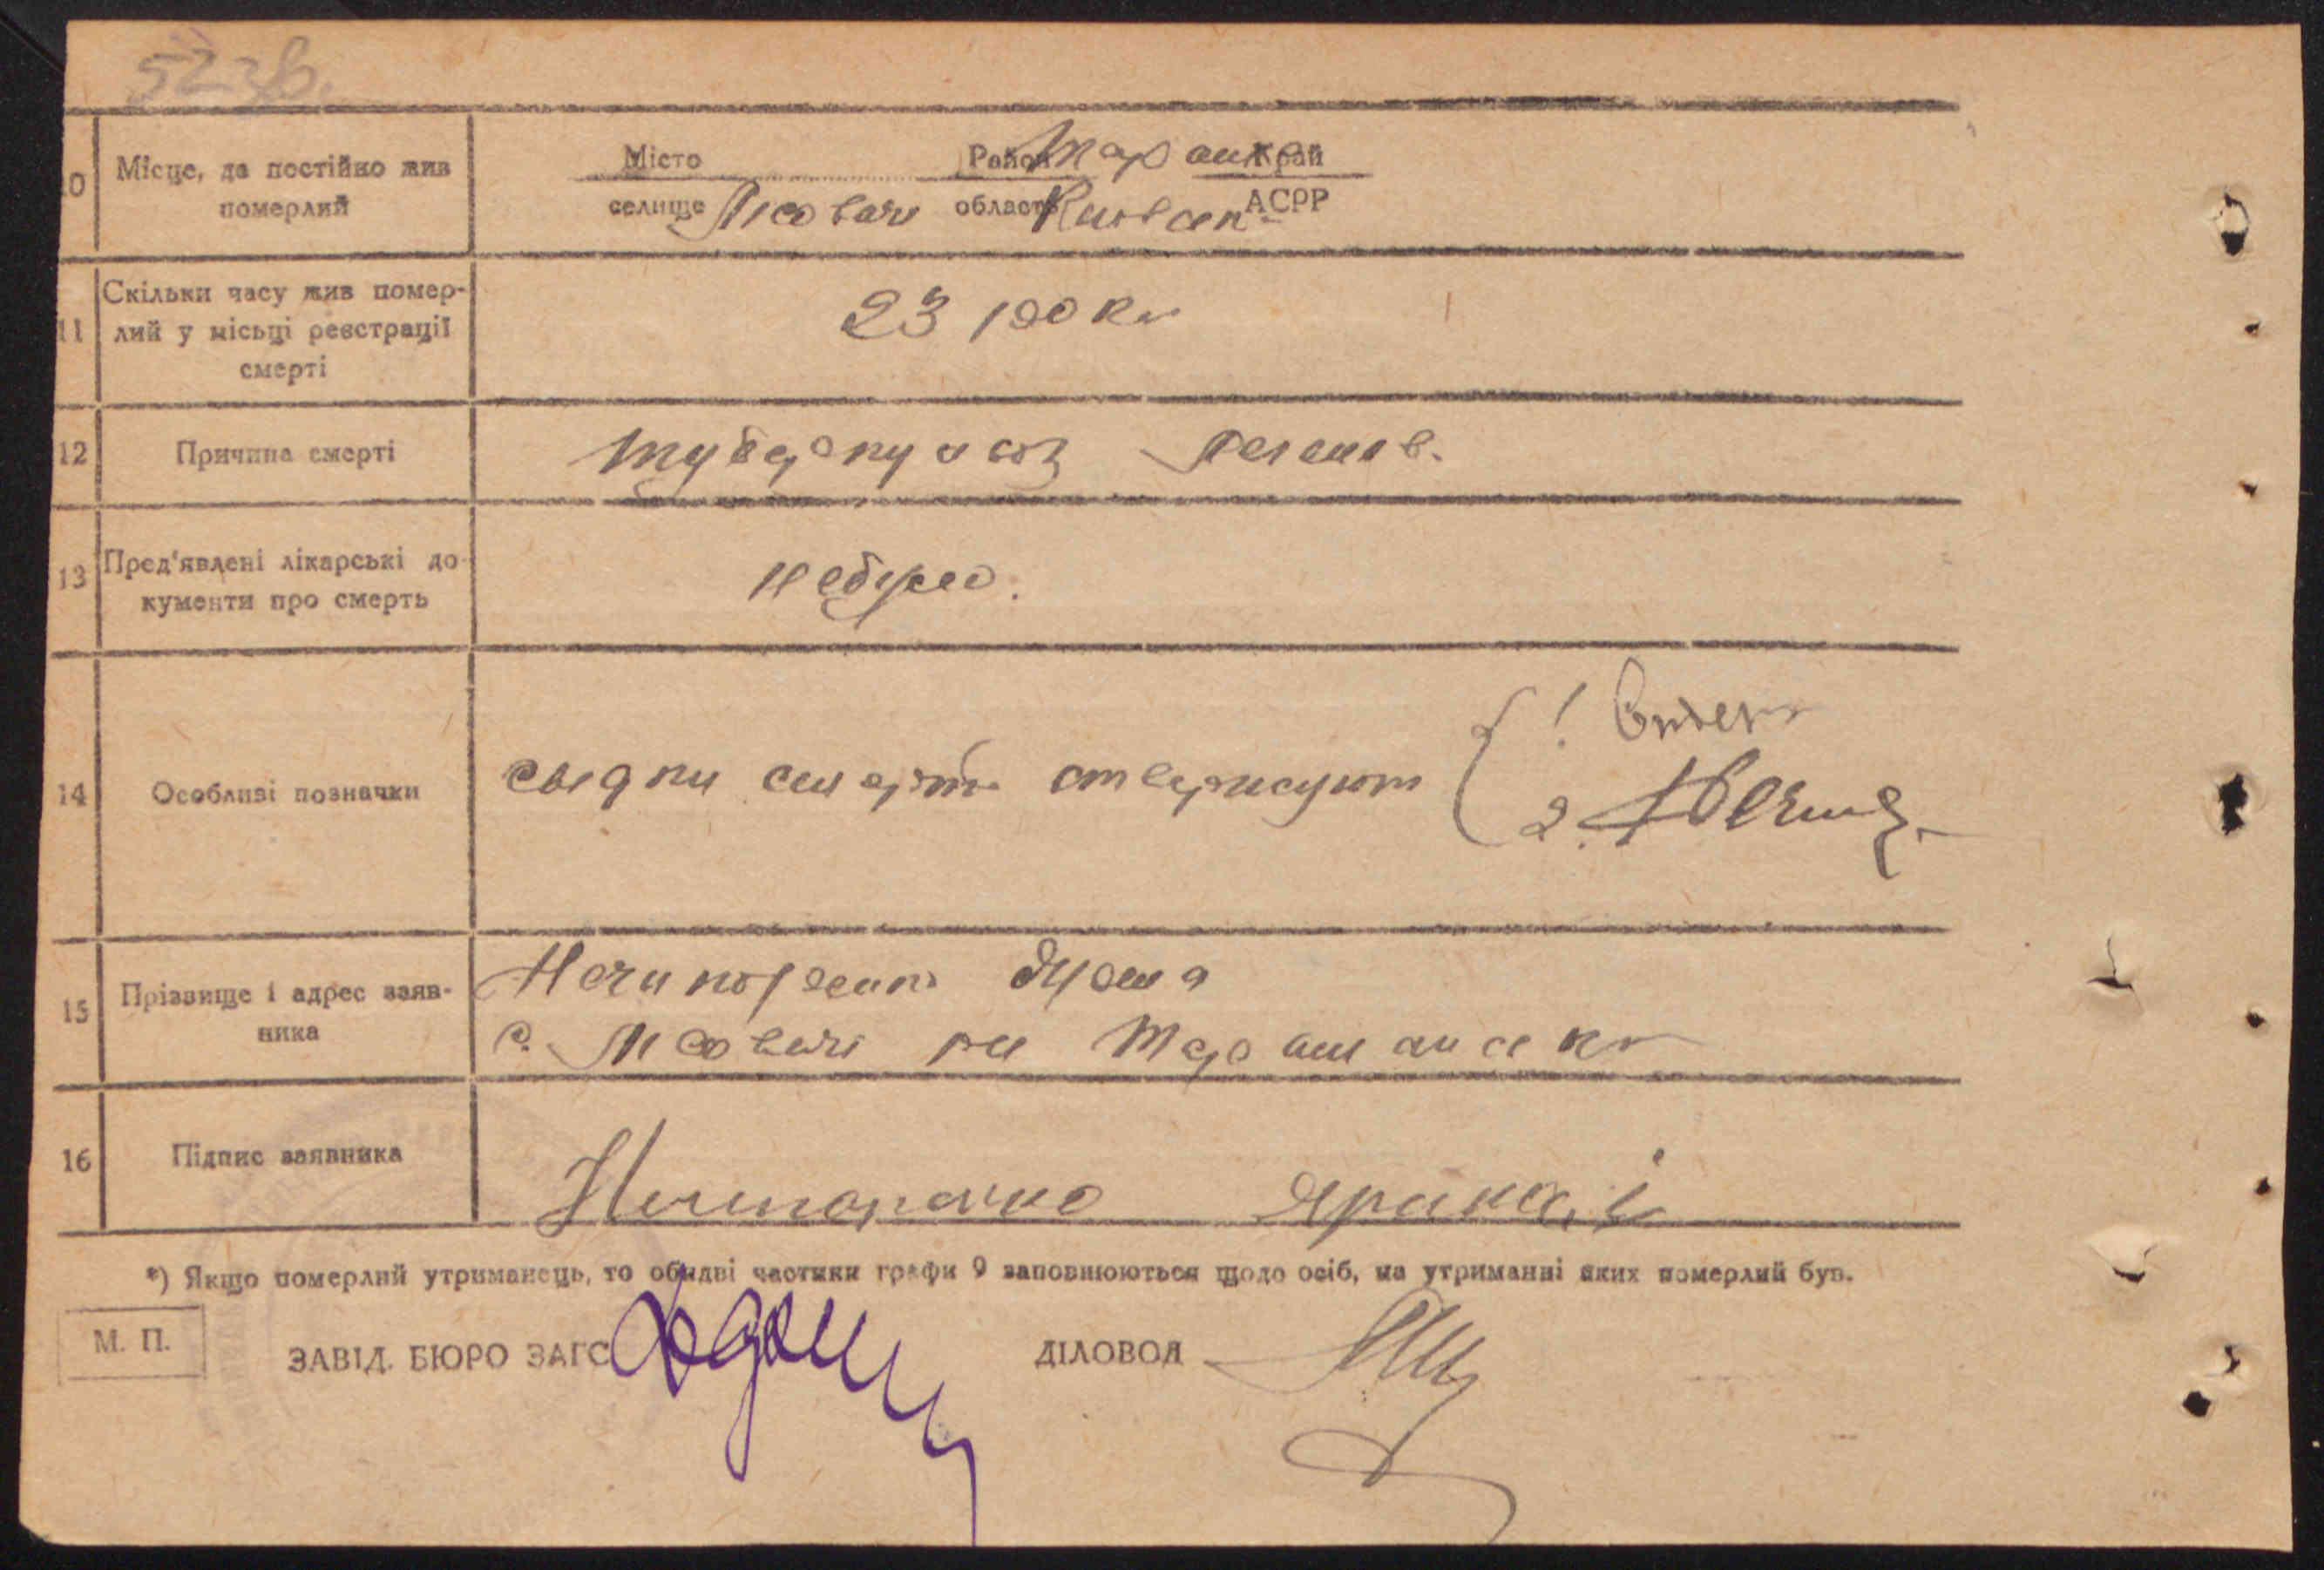 52 зв.
10 Місце, де постійно жив померлий
Місто Район Таращ Край
селище Лісовичі область Київськ АСРР
11 Скільки часу жив помер-
лий у місьці реєстрації
смерті
23 роки
12 Причина смерті туберкульоз легенів.
13 Пред'явлені лікарські до-
кументи про смерть
небуло.
14 Особливі позначки свідки смерть ствержують { 1
2.
15 Прізвище і адрес заяв-
ника
Нечипоренко
с. Лісовичі рн Таращанськ
16 Підпис заявника Ничипоренко
*) Якщо померлий утриманець, то обидві частики графи 9 заповнюються щодо осіб, на утриманні яких померлий був.
М. П.
ЗАВІД. БЮРО ЗАГС ДІЛОВОД